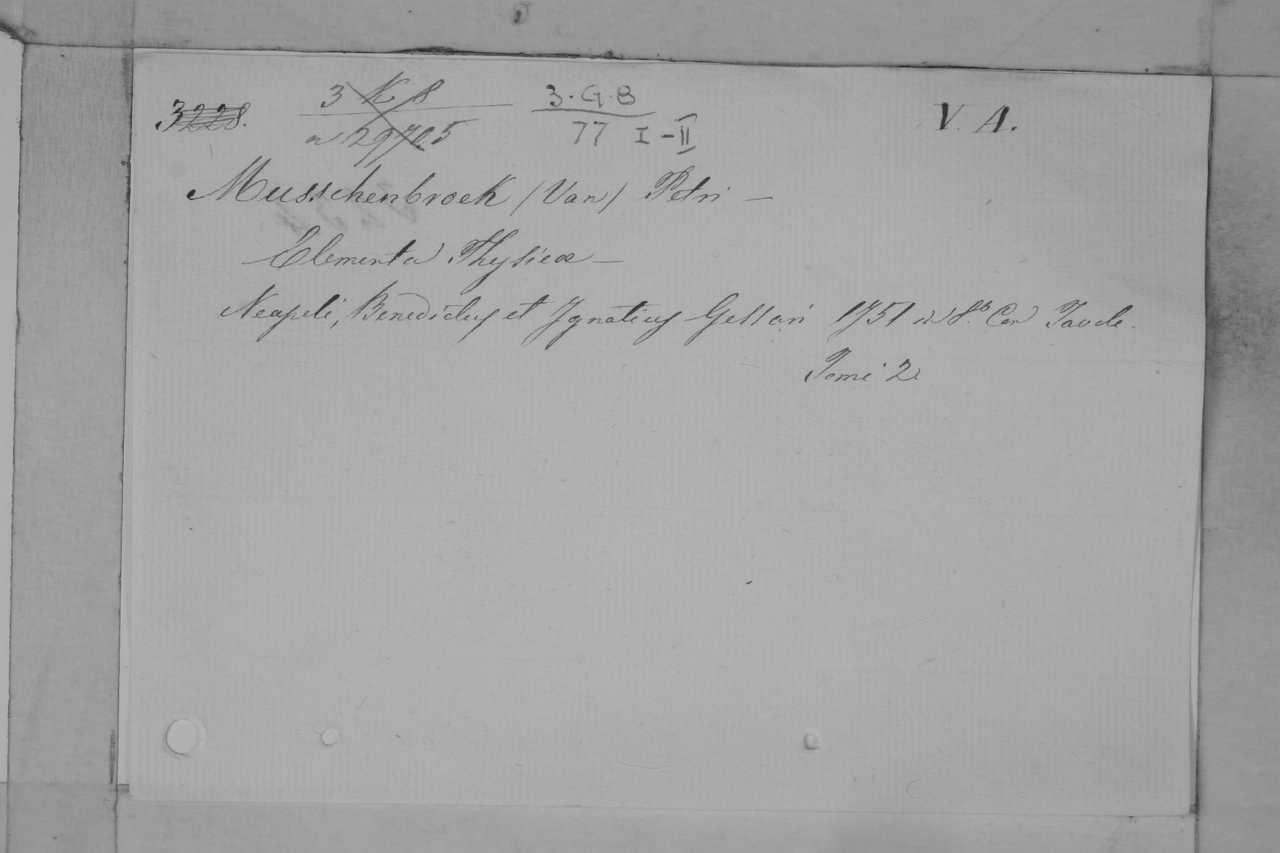 3228. 3 K 8 3.G.B V. A.
n 29705 77 I-II
Musschenbroek (Van) Petri —
Elementa Physicæ —
Neapoli, Benedictus et Ignatius Gessari 1751 in 8.º Con Tavole.
Tomi 2